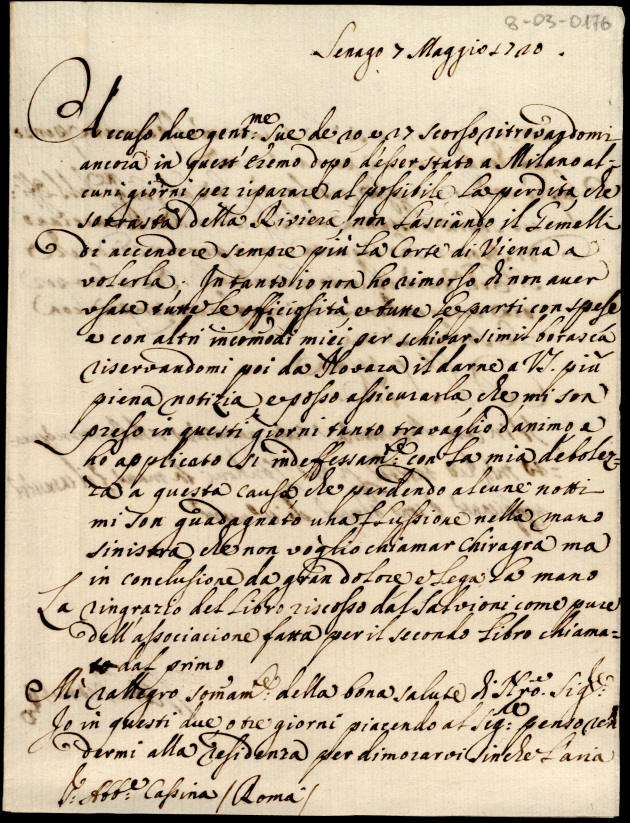 8-03-0176
Senago 7 Maggio 1720.
Accuso due gent.me sue de 20 e 27 scorso ritrovandomi
ancora in quest'Eremo dopo d'esser stato a Milano al-
cuni giorni per riparare al possibile la perdita che
sovrasta della Riviera, non lasciando il Gemelli
di accendere sempre più la Corte di Vienna a
volerla. Intanto io non ho rimorso di non aver
usate tutte le officiosità e tutte le parti con spese
e con altri incomodi miei per schivar simil borasca
riservandomi poi da Novara il darne a V.S. più
piena notizia e posso assicurarla che mi son
preso in questi giorni tanto travaglio d'animo e
ho applicato sì indefessam.te con la mia debolez-
za a questa causa che perdendo alcune notti
mi son guadagnato una flussione nella mano
sinistra che non voglio chiamar Chiragra ma
in conclusione da gran dolore e lega la mano
La ringrazio del Libro riscosso dal Salvioni come pure
dell'associacione fatta per il secondo Libro chiama-
to dal primo
Mi rallegro somam.te della bona salute di Nro. Sig.re
Io in questi due o tre giorni piacendo al Sig.re penso ren
dermi alla residenza per dimorarvi sinche l'aria
Abb.e Cassina / Roma /